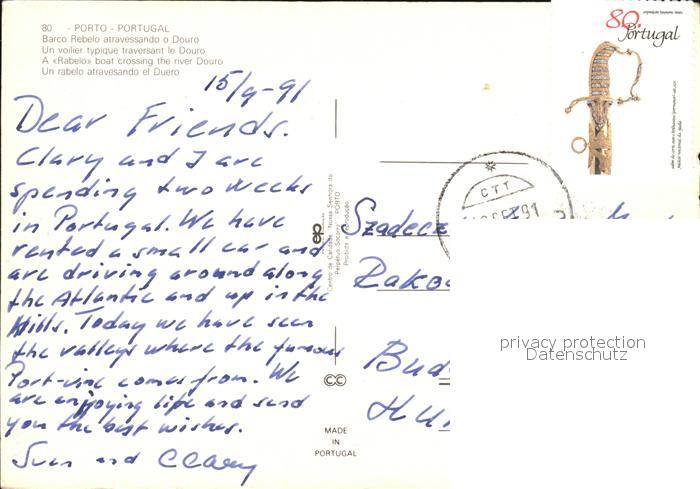 80 - PORTO - PORTUGAL
Barco Rebelo atravessando o Douro
Un voilier typique traversant le Douro
A «Rabelo» boat crossing the river Douro
Un rabelo atravesando el Duero
15/9-91
Dear Friends.
Clary and I are
spending two weeks
in Portugal. We have
rented a small car and
are driving around along
the Atlantic and up in the
Hills. Today we have seen
the valleys where the famous
Port-vine comes from. We
are enjoying life and send
you the best wishes.
Sven and Clary
ep
Centro de Caridade, Nossa Senhora do
Perpétuo Socorro - PORTO
MADE
IN
PORTUGAL
80.
Portugal
CTT
91
Szadecz
Rako
Bud
HU
privacy protection
Datenschutz